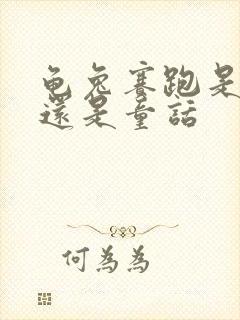 龟兔赛跑是
還是童話
何為為